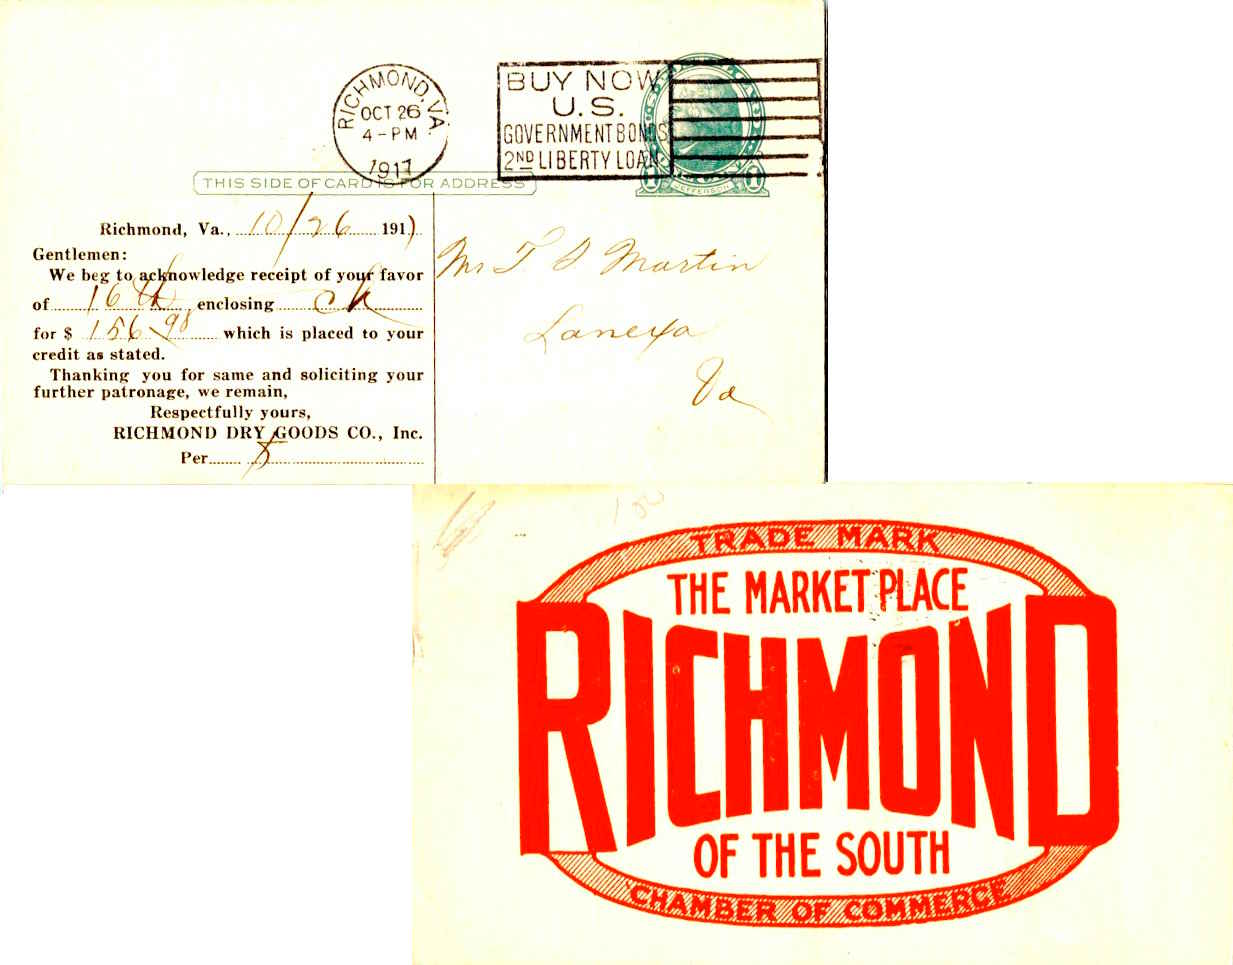 RICHMOND, VA.
OCT 26
4-PM
1917
BUY NOW
U.S.
GOVERNMENT BONDS
2ND LIBERTY LOAN
1 JEFFERSON 1
THIS SIDE OF CARD IS FOR ADDRESS
Richmond, Va., 10/26 1917
Gentlemen:
We beg to acknowledge receipt of your favor
of 16th enclosing ck
for $ 156.98 which is placed to your
credit as stated.
Thanking you for same and soliciting your
further patronage, we remain,
Respectfully yours,
RICHMOND DRY GOODS CO., Inc.
Per
Mr T. S Martin
Lanexa
Va
TRADE MARK
THE MARKET PLACE
RICHMOND
OF THE SOUTH
CHAMBER OF COMMERCE